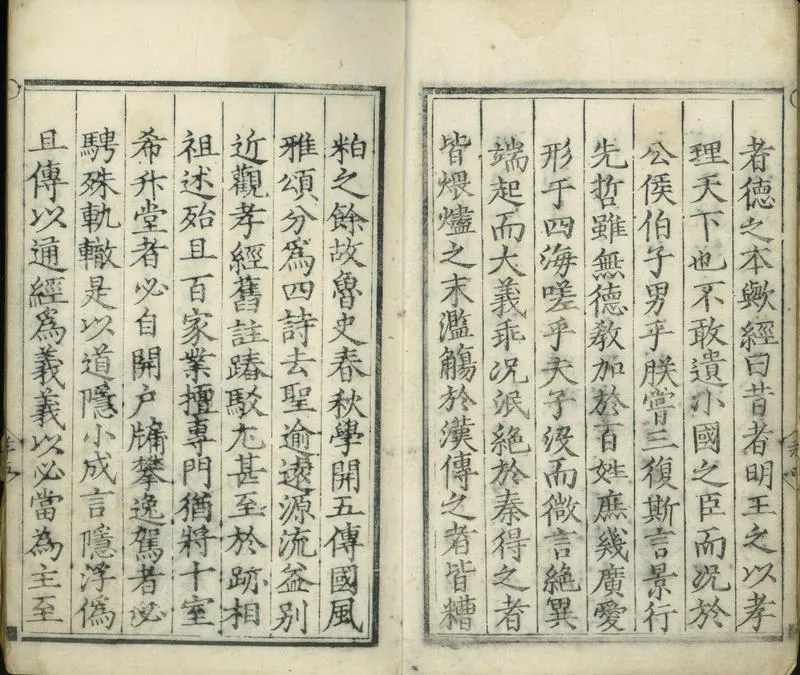 者德之本歟經曰昔者明王之以孝
理天下也不敢遺小國之臣而况於
公侯伯子男乎朕嘗三復斯言景行
先哲雖無德教加於百姓庶幾廣愛
形于四海嗟乎夫子没而微言絕異
端起而大義乖况泯絕於秦得之者
皆煨燼之末濫觴於漢傳之者皆糟
粕之餘故魯史春秋學開五傳國風
雅頌分爲四詩去聖逾遠源流益别
近觀孝經舊註踳駁尤甚至於跡相
祖述殆且百家業擅專門猶將十室
希升堂者必自開户牖攀逸駕者必
騁殊軌轍是以道隱小成言隱浮僞
且傳以通經爲義義以必當為主至